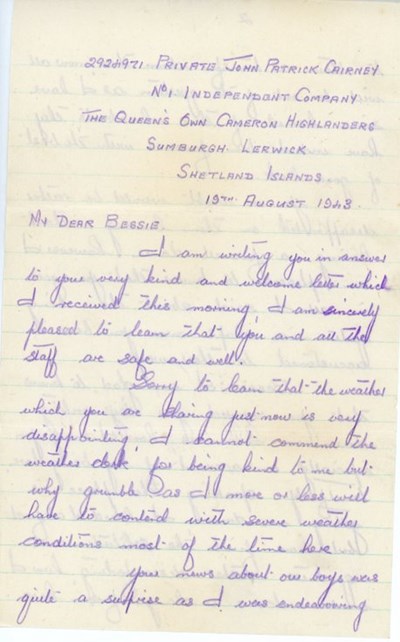 2924971 PRIVATE JOHN PATRICK CAIRNEY
No 1 INDEPENDENT COMPANY
THE QUEENS OWN CAMERON HIGHLANDERS
SUMBURGH. LERWICK
SHETLAND ISLANDS.
19TH AUGUST 1943.
MY DEAR BESSIE.
I am writing you in answer
to your very kind and welcome letter which
I received this morning, I am sincerely
pleased to learn that you and all the
staff are safe and well.
Sorry to learn that the weather
which you are having just now is very
disappointing, I cannot commend the
weather clerk for being kind to me but
why grumble as I more or less will
have to contend with severe weather
conditions most of the time here
your news about our boys was
quite a surprise as I was endeavouring